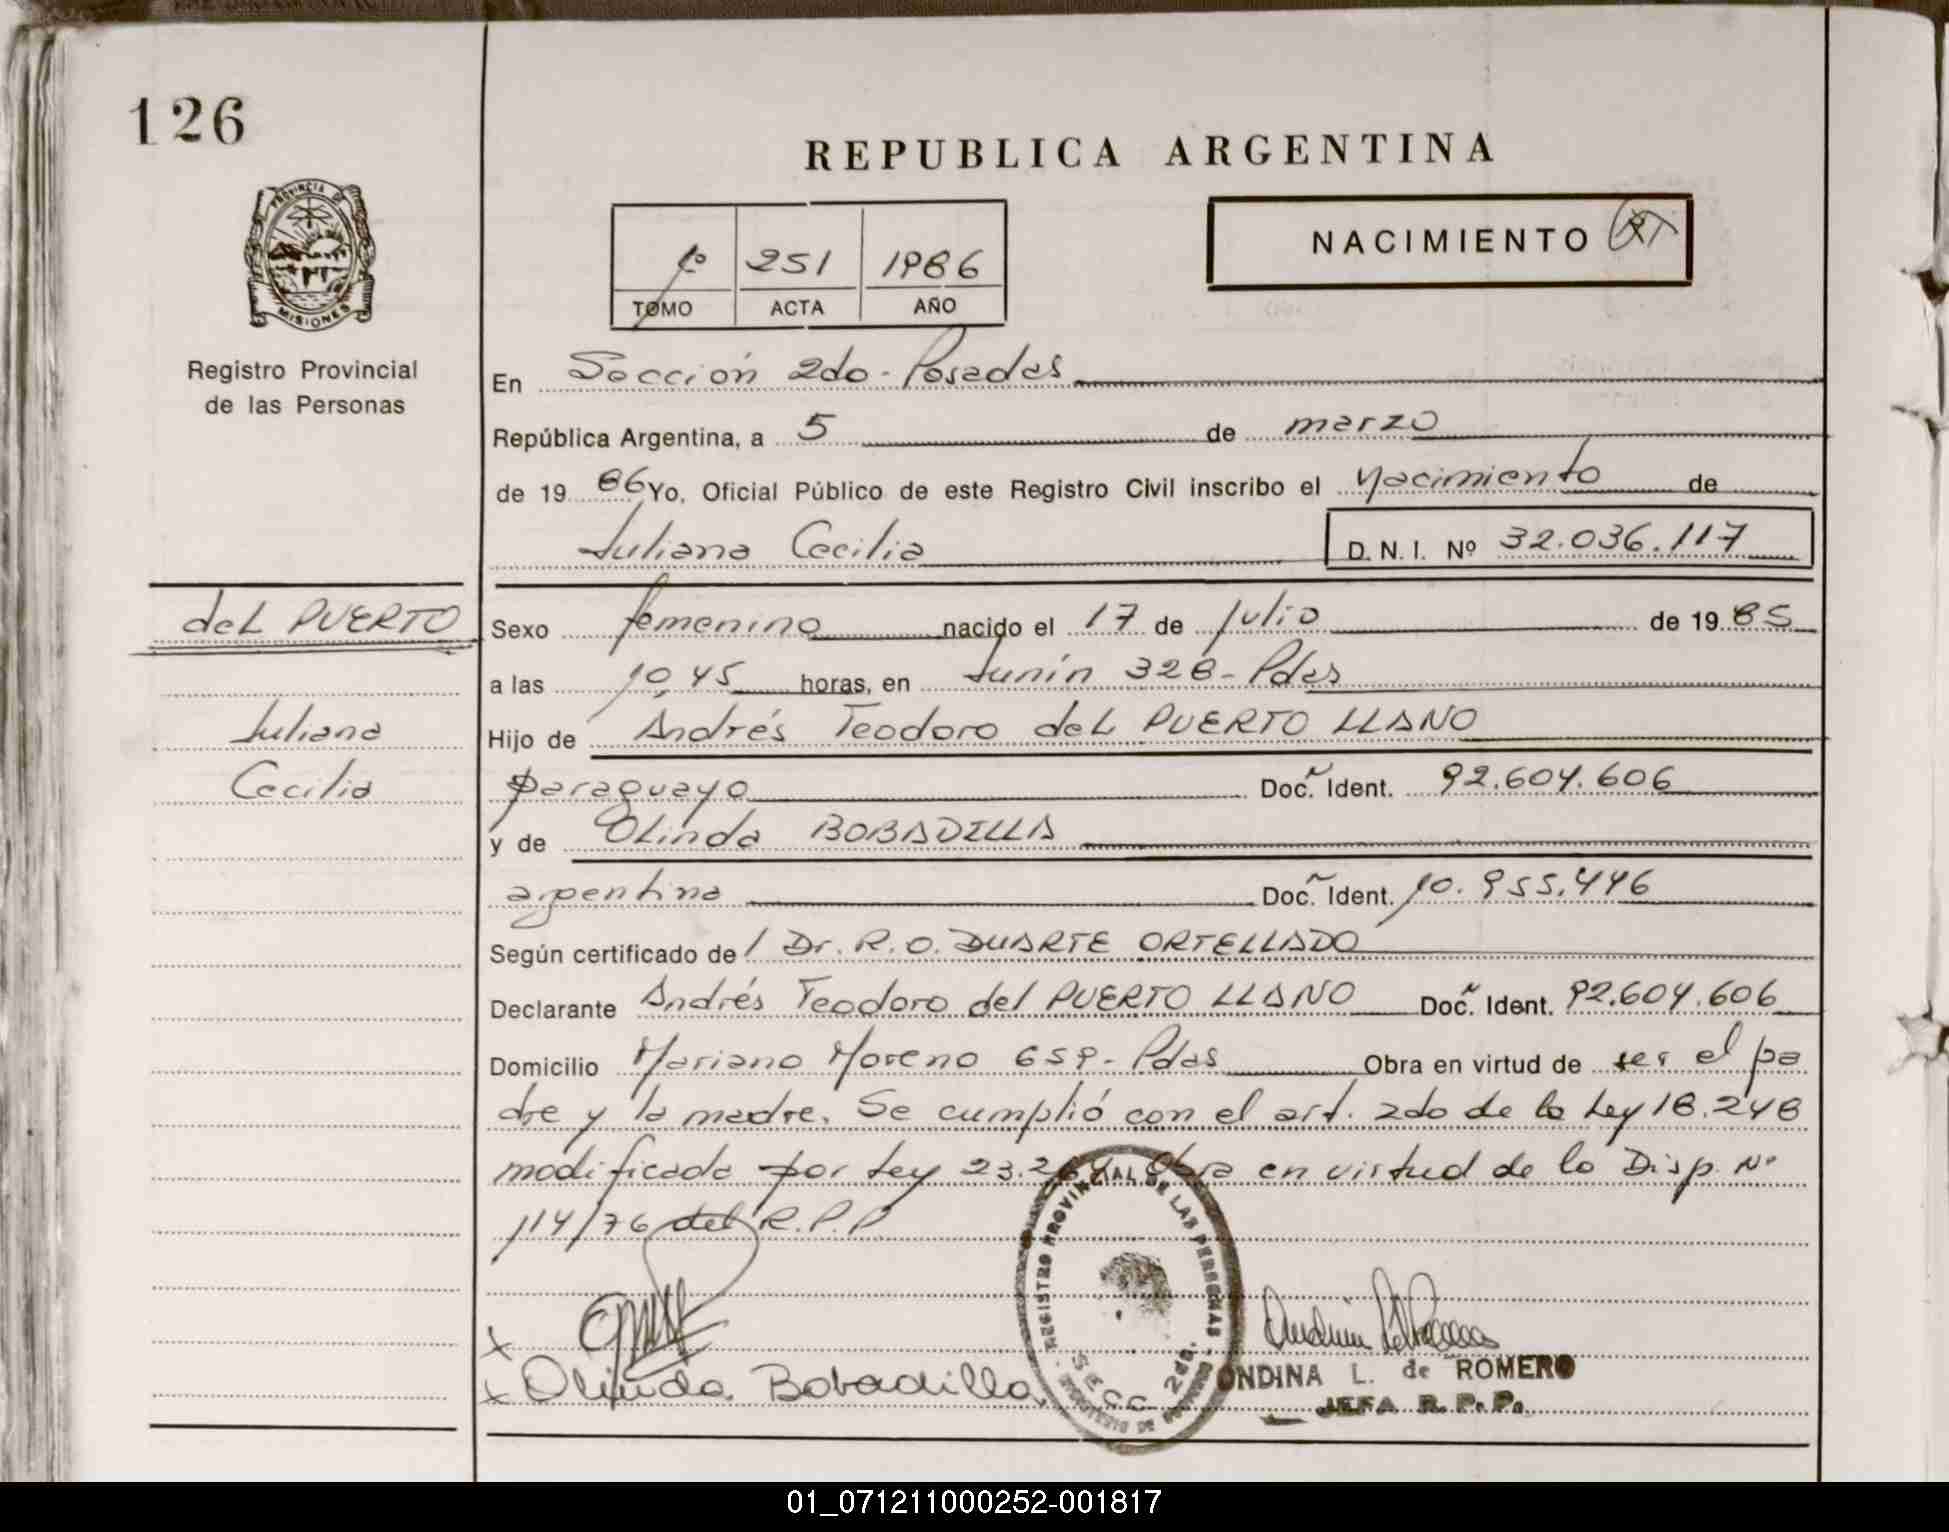 126
REPUBLICA ARGENTINA
PROVINCIA DE
MISIONES
Registro Provincial
de las Personas
1º 251 1986
TOMO ACTA AÑO
NACIMIENTO
En Sección 2do - Posadas
República Argentina, a 5 de marzo
de 19 86 Yo, Oficial Público de este Registro Civil inscribo el Nacimiento de
Juliana Cecilia D.N.I. Nº 32.036.117
del PUERTO
Juliana
Cecilia
Sexo femenino nacido el 17 de julio de 19 85
a las 10,45 horas, en Junín 328 - Pdas
Hijo de Andrés Teodoro del PUERTO LLANO
paraguayo Doc. Ident. 92.604.606
y de Olinda BOBADILLA
argentina Doc. Ident. 10.955.446
Según certificado de l Dr. R. O. DUARTE ORTELLADO
Declarante Andrés Teodoro del PUERTO LLANO Doc. Ident. 92.604.606
Domicilio Mariano Moreno 659 - Pdas Obra en virtud de ser el pa
dre y la madre. Se cumplió con el art. 2do de la Ley 18.248
modificada por Ley 23.264 Obra en virtud de la Disp. Nº
114/76 del R.P.P
REGISTRO PROVINCIAL DE LAS PERSONAS
SECC. 2da.
x
x Olinda Bobadilla
ONDINA L. de ROMERO
JEFA R. P. P.
01_071211000252-001817